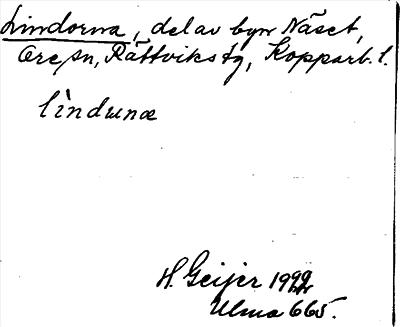 Lindorna, del av byn Näset,
Ore sn, Rättviks tg, Kopparb. l.
lìndưnœ
H. Geijer
Ulma 665.